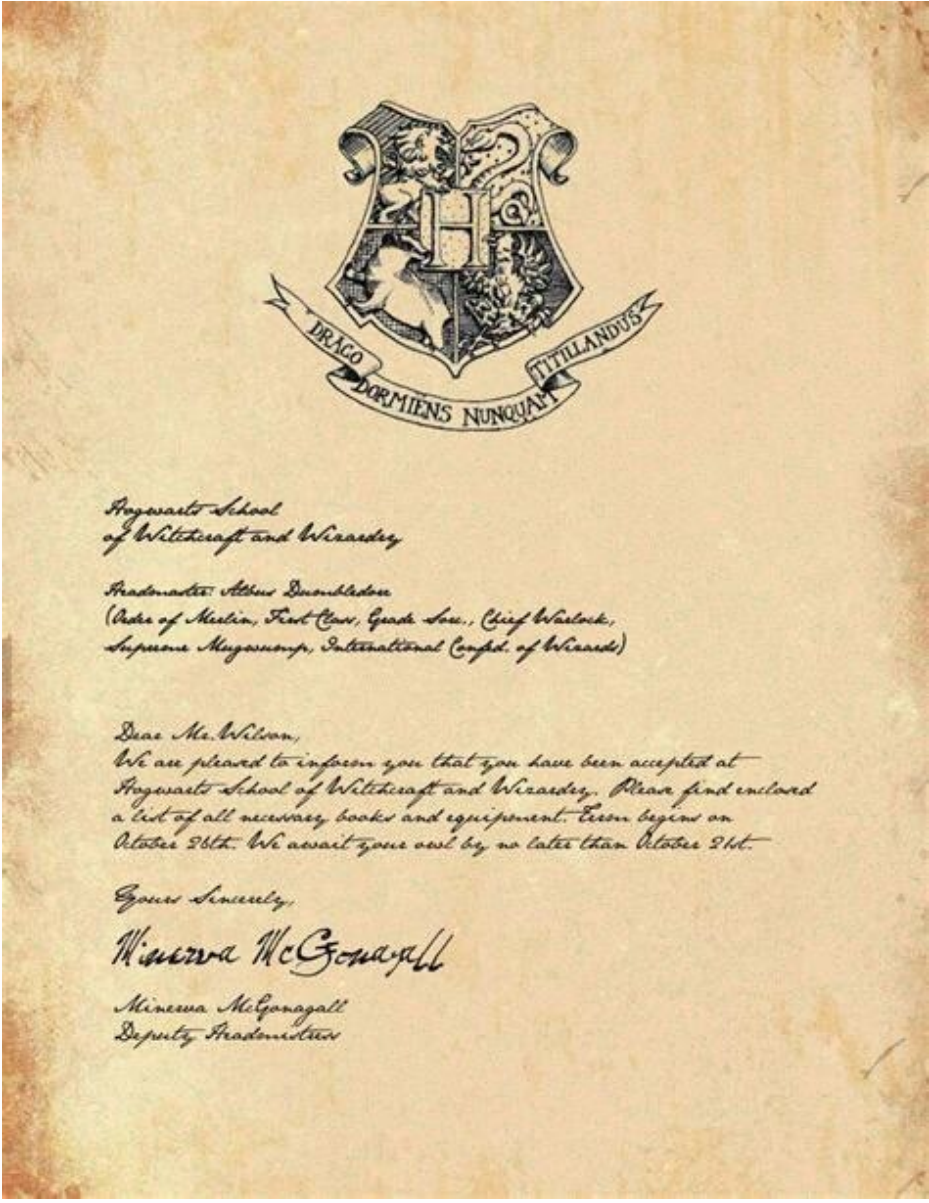 H
DRACO
DORMIENS NUNQUAM
TITILLANDUS
Hogwarts School
of Witchcraft and Wizardry
Headmaster: Albus Dumbledore
(Order of Merlin, First Class, Grade Sorc., Chief Warlock,
Supreme Mugwump, International Confed. of Wizards)
Dear Mr. Wilson,
We are pleased to inform you that you have been accepted at
Hogwarts School of Witchcraft and Wizardry. Please find enclosed
a list of all necessary books and equipment. Term begins on
October 26th. We await your owl by no later than October 21st.
Yours Sincerely,
Minerva McGonagall
Minerva McGonagall
Deputy Headmistress